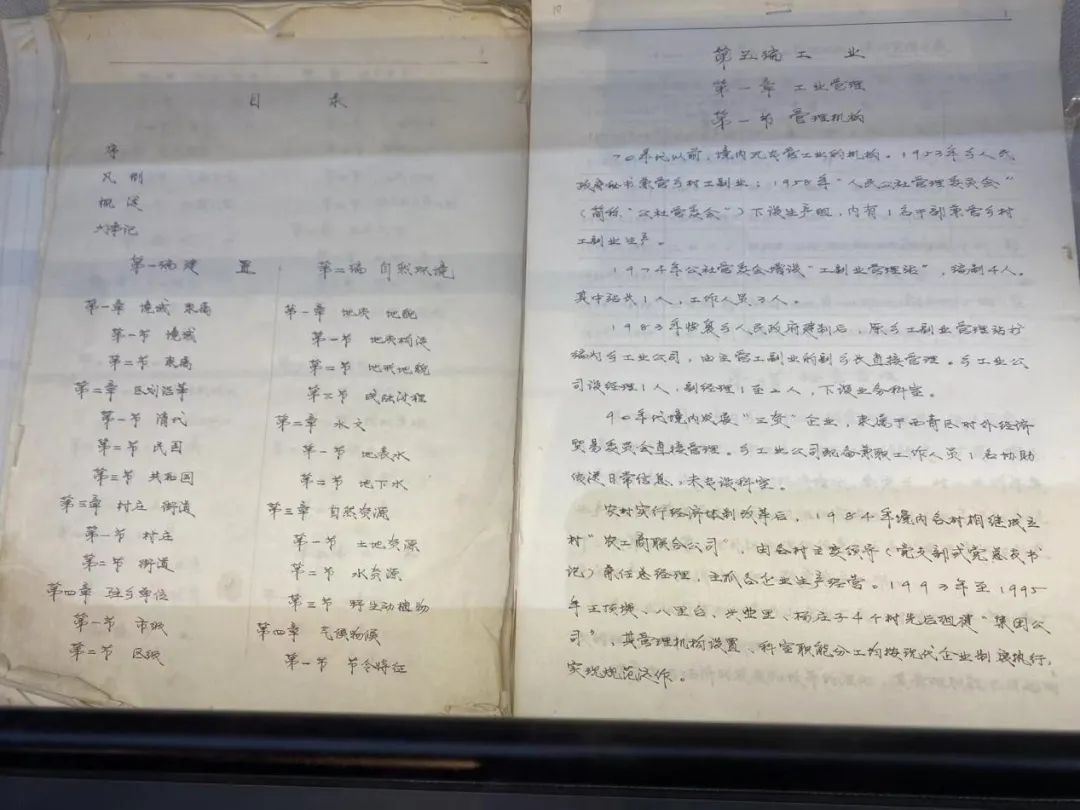 目 录
序
凡例
概述
大事记
第一编 建置
第一章 境域 隶属
第一节 境域
第二节 隶属
第二章 区划沿革
第一节 清代
第二节 民国
第三节 共和国
第三章 村庄 街道
第一节 村庄
第二节 街道
第四章 驻乡单位
第一节 市级
第二节 区级
第二编 自然环境
第一章 地质 地貌
第一节 地质构造
第二节 地形地貌
第三节 成陆过程
第二章 水文
第一节 地表水
第二节 地下水
第三章 自然资源
第一节 土地资源
第二节 水资源
第三节 野生动植物
第四章 气候物候
第一节 节令特征
第五编 工业
第一章 工业管理
第一节 管理机构
70年代以前,境内无专管工业的机构。1953年乡人民
政府秘书兼管乡村工副业;1958年“人民公社管理委员会”
(简称“公社管委会”)下设生产组,内有1名干部兼管乡村
工副业生产。
1974年公社管委会增设“工副业管理站”,编制4人。
其中站长1人,工作人员3人。
1983年恢复乡人民政府建制后,原乡工副业管理站打
编为乡工业公司,由主管工副业的副乡长直接管理。乡工业公
司设经理1人,副经理1至2人,下设业务科室。
90年代境内发展“三资”企业,隶属于西青区对外经济
贸易委员会直接管理。乡工业公司配备兼职工作人员1名协助
传送日常信息,未专设科室。
农村实行经济体制改革后,1984年境内各村相继成立
村“农工商联合公司”,由各村主要领导(党支部或党总支书
记)兼任总经理,主抓各企业生产经营。1993年至1995
年王顶堤、八里台、兴业里、杨庄子4个村先后组建“集团公
司”,其管理机构设置、科室职能分工均按现代企业制度执行,
实现规范运作。